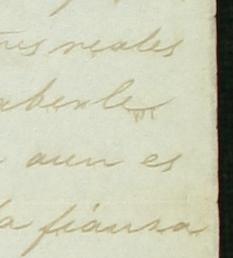 tres reales
aberle
aun es
la fiansa